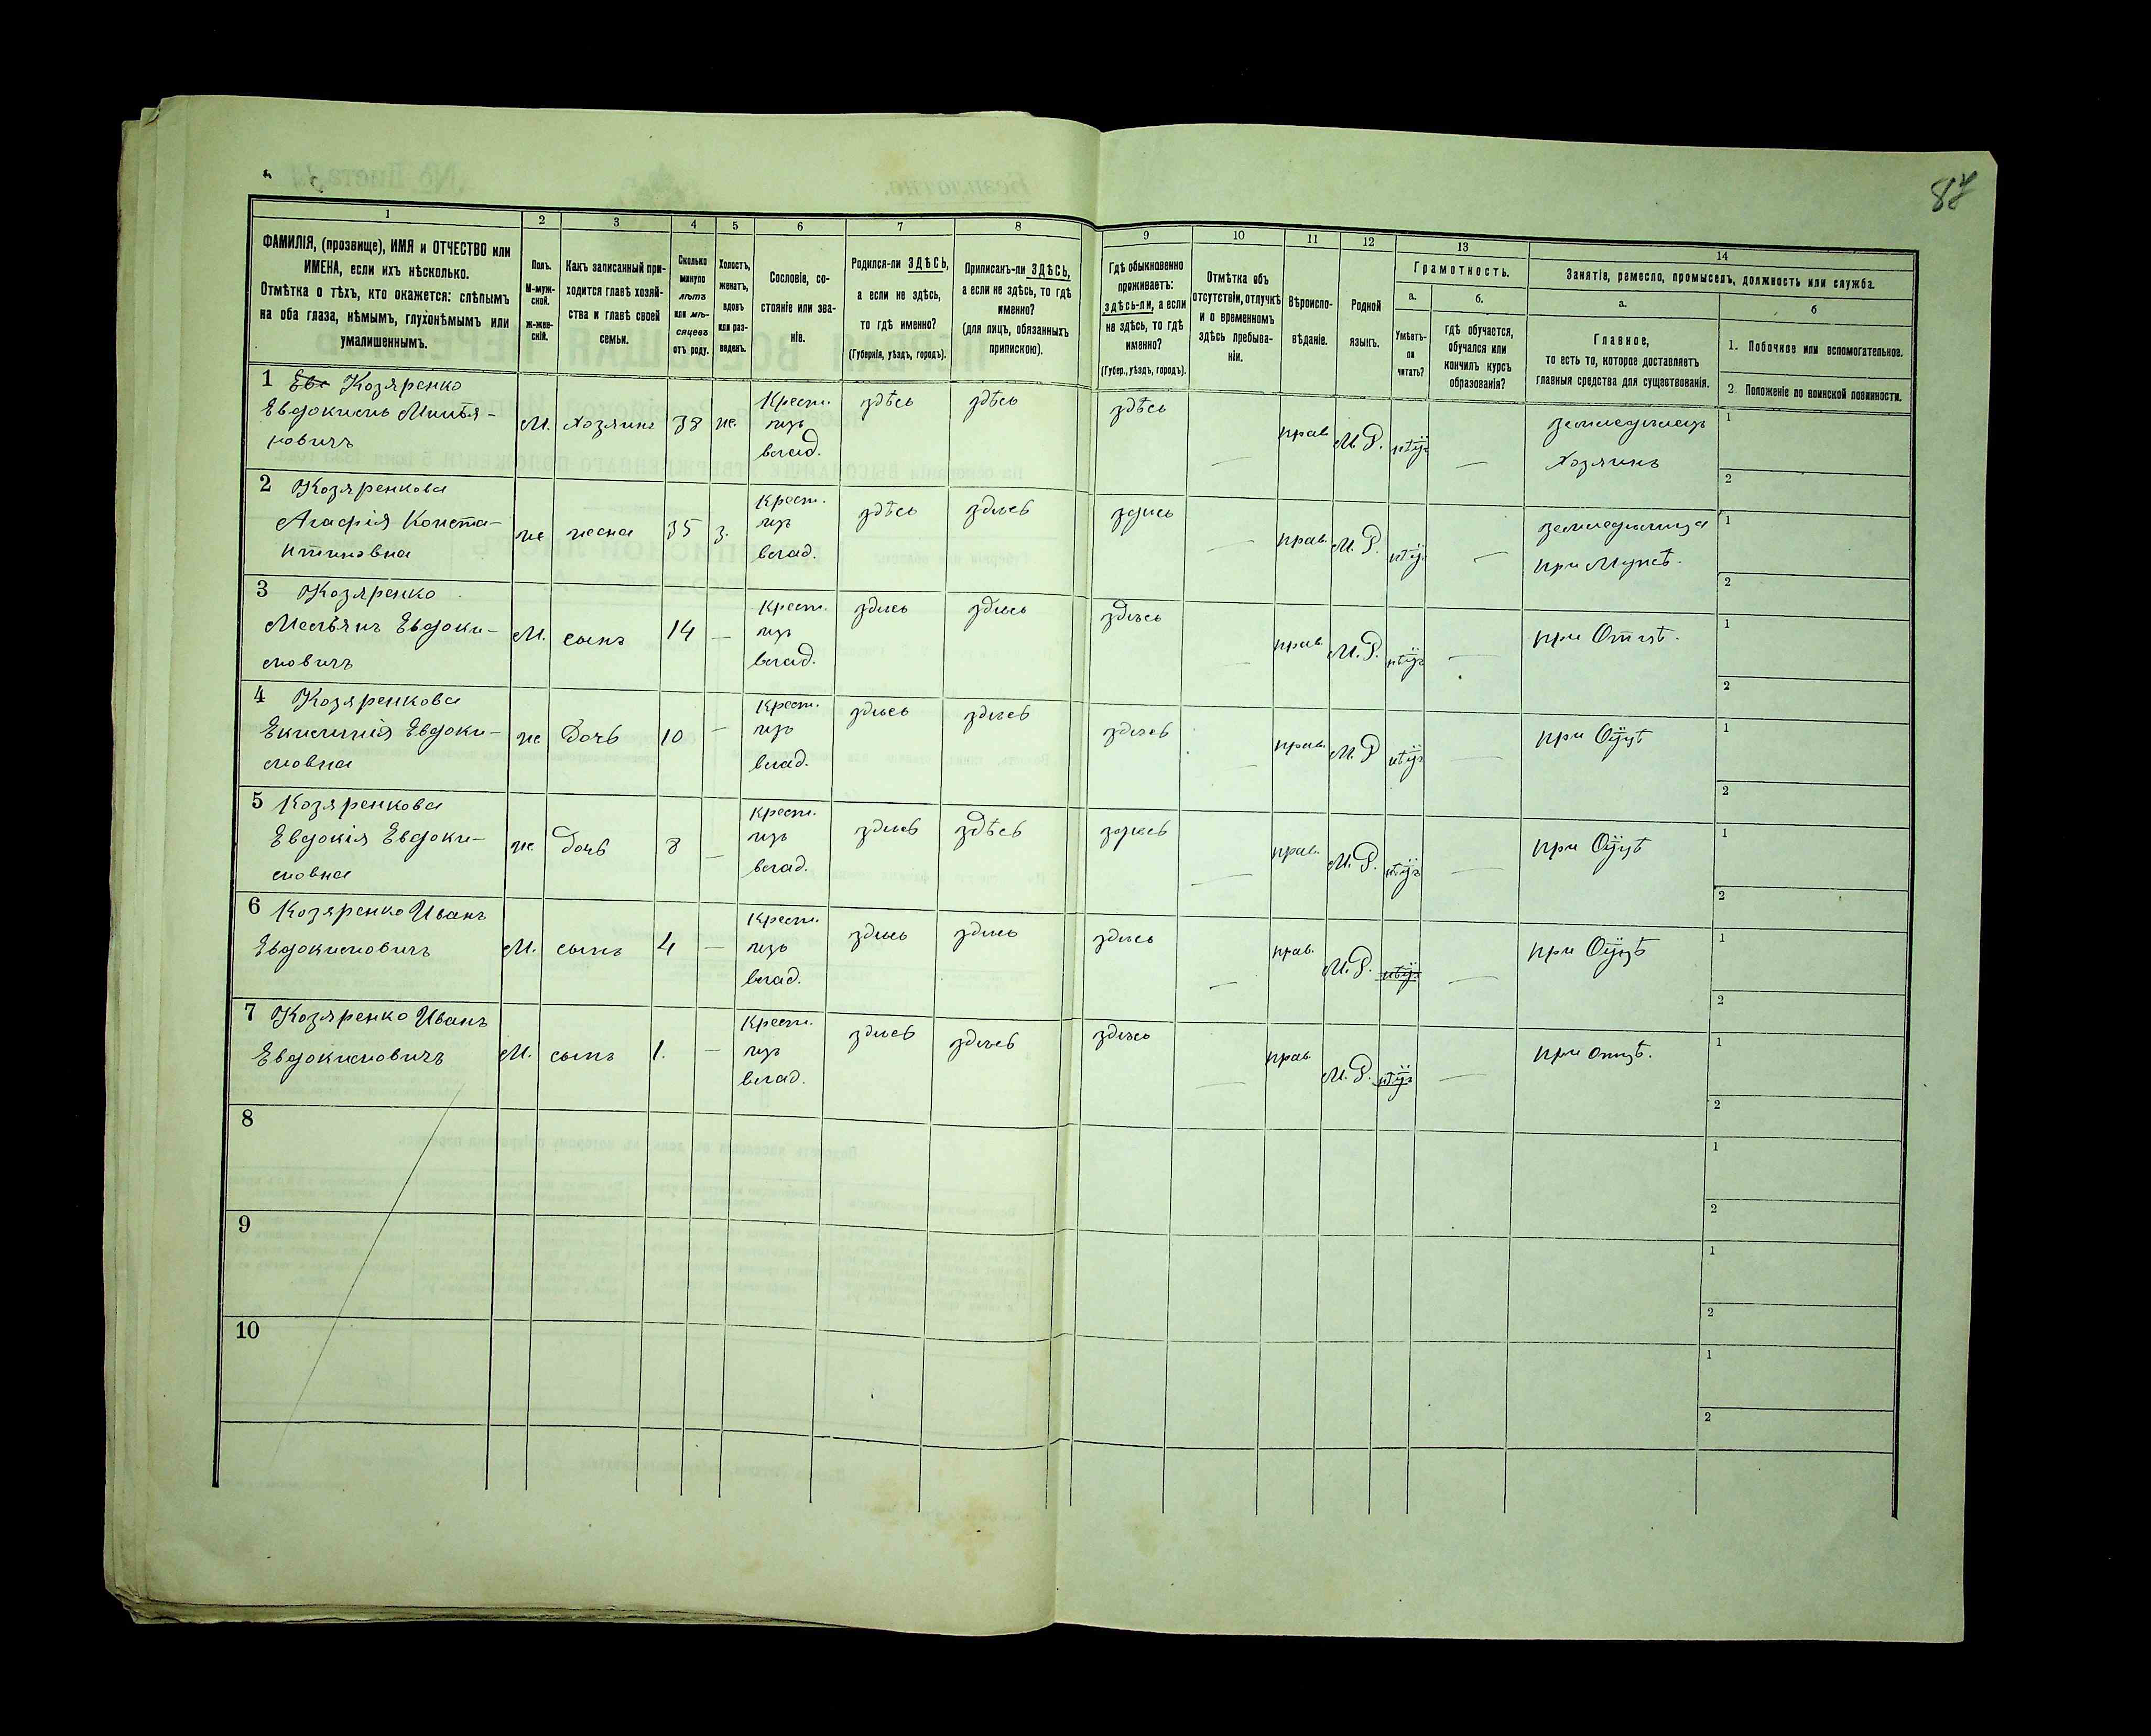 87
1
2
3
4
5
6
7
8
9
10
11
12
13
14
ФАМИЛІЯ, (прозвище), ИМЯ и ОТЧЕСТВО или
ИМЕНА, если ихъ нѣсколько.
Отмѣтка о тѣхъ, кто окажется: слѣпымъ
на оба глаза, нѣмымъ, глухонѣмымъ или
умалишеннымъ.
Полъ.
М-муж-
ской.
ж-жен-
скій.
Какъ записанный при-
ходится главѣ хозяй-
ства и главѣ своей
семьи.
Сколько
минуло
лѣтъ
или мѣ-
сяцевъ
отъ роду.
Холостъ,
женатъ,
вдовъ
или раз-
веденъ.
Сословіе, со-
стояніе или зва-
ніе.
Родился-ли ЗДѢСЬ,
а если не здѣсь,
то гдѣ именно?
(Губернія, уѣздъ, городъ).
Приписанъ-ли ЗДѢСЬ,
а если не здѣсь, то гдѣ
именно?
(для лицъ, обязанныхъ
припискою).
Гдѣ обыкновенно
проживаетъ:
здѣсь-ли, а если
не здѣсь, то гдѣ
именно?
(Губер., уѣздъ, городъ).
Отмѣтка объ
отсутствіи, отлучкѣ
и о временномъ
здѣсь пребыва-
ніи.
Вѣроиспо-
вѣданіе.
Родной
языкъ.
Грамотность.
а.
Умѣетъ-
ли
читать?
б.
гдѣ обучается,
обучался или
кончилъ курсъ
образованія?
Занятіе, ремесло, промыселъ, должность или служба.
а.
Главное,
то есть то, которое доставляетъ
главныя средства для существованія.
б
1. Побочное или вспомогательное.
2. Положеніе по воинской повинности.
1 Козяренко
Евдокимъ
новичъ
М.
хозяинъ
38
же.
Крест.
изъ
влад.
здѣсь
здѣсь
здѣсь
—
прав
М.Р.
нѣтъ
—
земледѣлецъ
хозяинъ
1
2
2 Козяренкова
Агафія Конста-
нтиновна
же
жена
35
з.
Крест.
изъ
влад.
здѣсь
здѣсь
здѣсь
—
прав.
М.Р.
нѣтъ
—
земледѣлица
при Мужѣ.
1
2
3 Козяренко
Емельянъ Евдоки-
мовичъ
М.
сынъ
14
—
Крест.
изъ
влад.
здѣсь
здѣсь
здѣсь
—
прав.
М.Р.
нѣтъ
—
при Отцѣ.
1
2
4 Козяренкова
Евдоки-
мовна
же
Дочь
10
—
Крест.
изъ
влад.
здѣсь
здѣсь
здѣсь
—
прав.
М.Р
нѣтъ
—
при Отцѣ
1
2
5 Козяренкова
Евдокія Евдоки-
мовна
же
Дочь
8
—
Крест.
изъ
влад.
здѣсь
здѣсь
здѣсь
—
прав.
М.Р.
нѣтъ
—
при Отцѣ
1
2
6 Козяренко Иванъ
Евдокимовичъ
М.
сынъ
4
—
Крест.
изъ
влад.
здѣсь
здѣсь
здѣсь
—
прав.
М.Р.
нѣтъ
—
при Отцѣ
1
2
7 Козяренко Иванъ
Евдокимовичъ
М.
сынъ
1.
—
Крест.
изъ
влад.
здѣсь
здѣсь
здѣсь
—
прав
М.Р.
нѣтъ
—
при отцѣ.
1
2
8
1
2
9
1
2
10
1
2